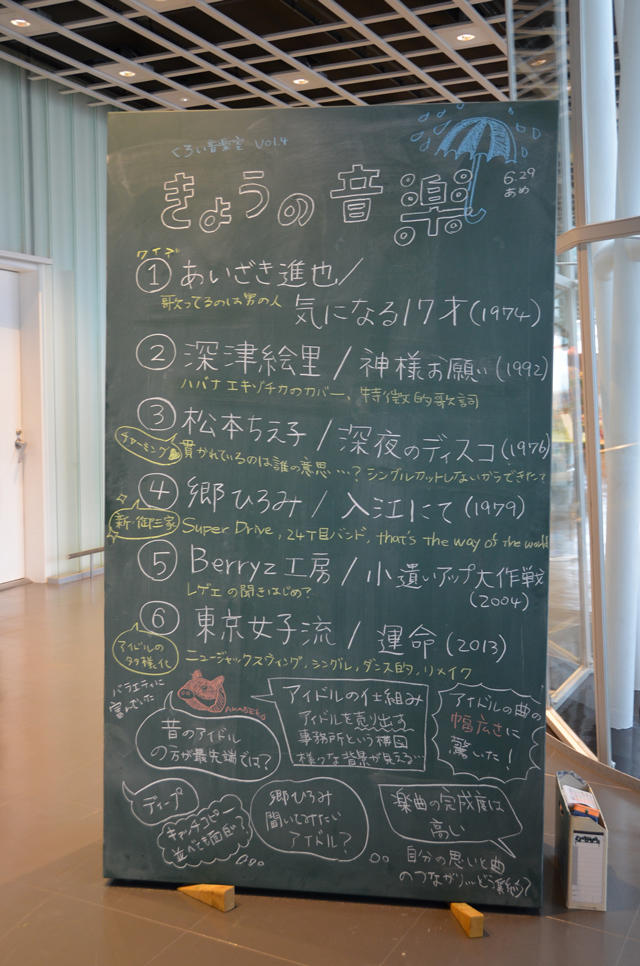 くろい音楽室 Vol.4
きょうの音楽
6.29
あめ
ワイデ
① あいざき進也/
歌ってるのは男の人
気になる17才(1974)
② 深津絵里/神様お願い(1992)
ハバナエキゾチカのカバー、特徴的歌詞
③ 松本ちえ子/深夜のディスコ(1976)
チャーミング
貫かれているのは誰の意思…? シングルカットしない
④ 郷ひろみ/入江にて(1979)
新・御三家
Super Drive, 24丁目バンド, that's the way of the world
⑤ Berryz工房/小遣いアップ大作戦
(2004)
レゲエの聞きはじめ?
⑥ 東京女子流/運命(2013)
アイドルの
多様化
ニュージャックスウィング, シングル, ダンス的, リメイク
バラエティに
富んでいた
昔のアイドル
の方が最先端では?
アイドルの仕組み
アイドルを売り出す
事務所という構図
様々な背景が見える…
アイドルの曲の
幅広さに
驚いた!
ディープ
キャッチコピー
並べても面白い?
郷ひろみ
聞いてみたい
アイドル?
楽曲の完成度は
高い
自分の思いと曲
のつながり…どう